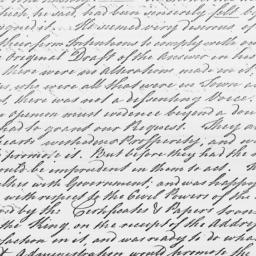 which, he said, had been sincerely felt by
signed it. He seemed very desirous of
their firm Intentions to comply with our
e Original Draft of the Answer in his
there were no alterations made in it,
s, who were all that were in Town at
t, there was not a dissenting Voice.
s opinion must evidence beyond a dou
had to grant our Request. They all
hearts wished us Prosperity, and w
promote it. But before they had the
ould be imprudent in them to act. H
lties with Government; and was happy
with respect to the Civil Powers of the
nd by the Certificates & Papers tran
the King, on the receipt of the Addre
faction in it, and was ready to do wha
t Administration would promote the